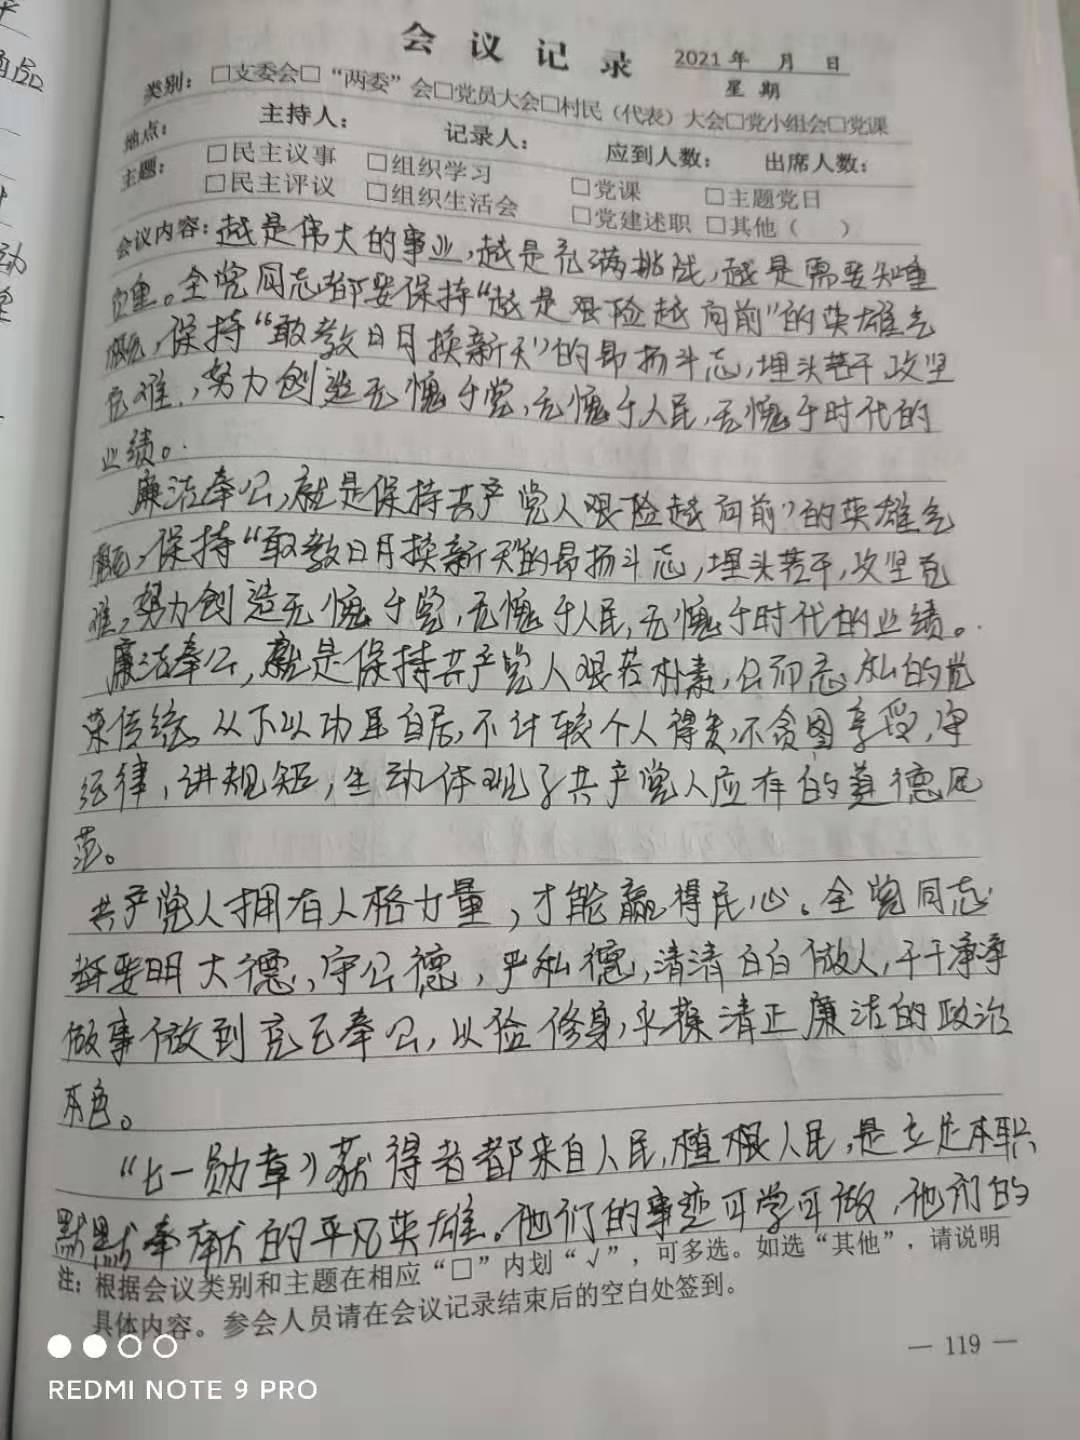 会议记录
2021年 月 日
星期
类别：□支委会□“两委”会□党员大会□村民（代表）大会□党小组会□党课
地点： 主持人： 记录人： 应到人数： 出席人数：
主题： □民主议事 □组织学习 □党课 □主题党日
□民主评议 □组织生活会 □党建述职 □其他（ ）
会议内容：越是伟大的事业，越是充满挑战，越是需要知重
负重。全党同志都要保持“越是艰险越向前”的英雄气
概，保持“敢教日月换新天”的昂扬斗志，埋头苦干、攻坚
克难，努力创造无愧于党，无愧于人民，无愧于时代的
业绩。
廉洁奉公，就是保持共产党人艰险越向前”的英雄气
概，保持“敢教日月换新天”的昂扬斗志，埋头苦干，攻坚克
难，努力创造无愧于党，无愧于人民，无愧于时代的业绩。
廉洁奉公，就是保持共产党人艰苦朴素，公而忘私的光
荣传统。从不以功臣自居，不计较个人得失，不贪图享受，守
纪律，讲规矩，生动体现了共产党人应有的道德风
范。
共产党人拥有人格力量，才能赢得民心。全党同志
都要明大德，守公德，严私德，清清白白做人，干干净净
做事做到克己奉公，以俭修身，永葆清正廉洁的政治
本色。
“七一勋章》获得者都来自人民，植根人民，是立足本职
默默奉献的平凡英雄。他们的事迹可学可做，他们的
注：根据会议类别和主题在相应“□”内划“√”，可多选。如选“其他”，请说明
具体内容。参会人员请在会议记录结束后的空白处签到。
— 119 —
REDMI NOTE 9 PRO